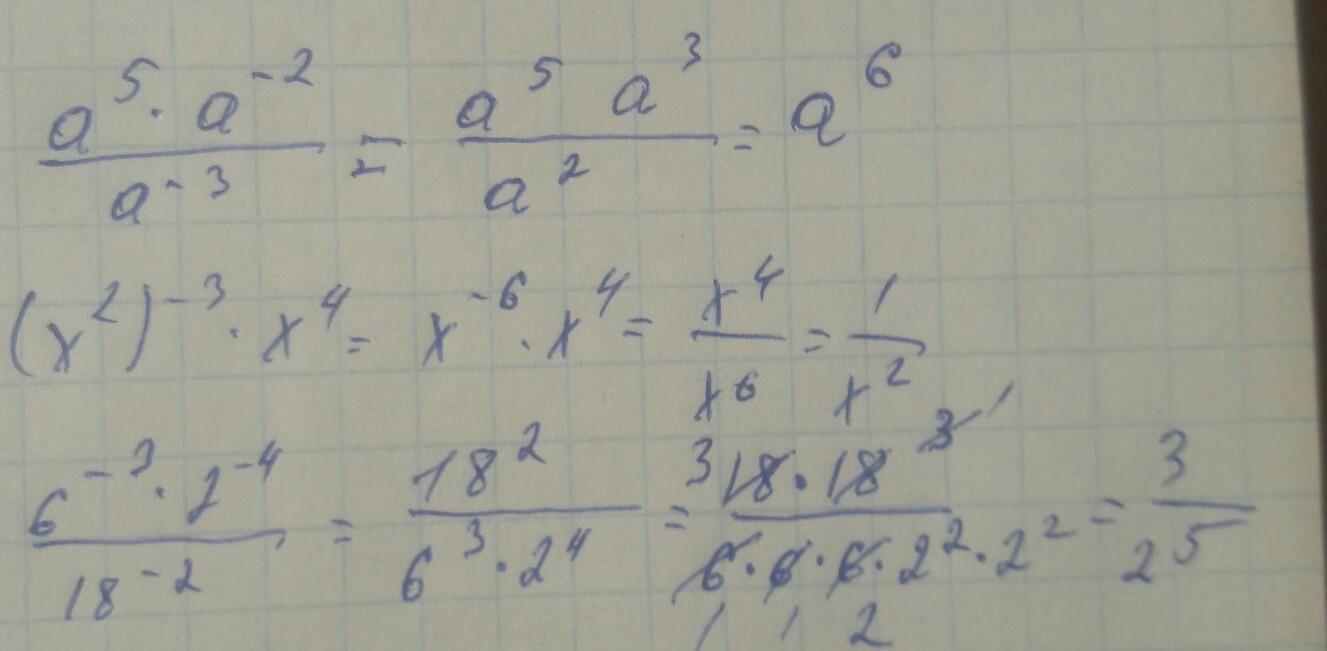 a⁵ · a⁻² / a⁻³ = a⁵ a³ / a² = a⁶
(x²)⁻³ · x⁴ = x⁻⁶ · x⁴ = x⁴ / x⁶ = 1 / x²
6⁻³ · 2⁻⁴ / 18⁻² = 18² / 6³ · 2⁴ = 3 18 · 18 3 1 / 6 · 6 · 6 · 2² · 2² = 3 / 2⁵
1 1 2